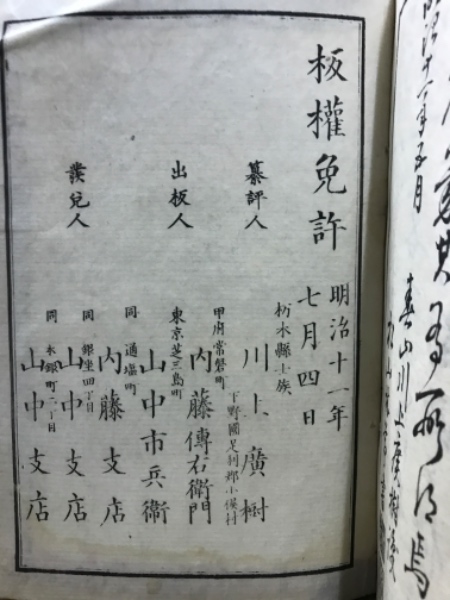 板權免許
明治十一年
七月四日
纂評人
栃木縣士族
川上廣樹
下野國足利郡小俣村
出板人
甲府常磐町
内藤傳右衛門
東京芝三島町
山中市兵衞
發兌人
同 通塩町
内藤支店
同 銀座四丁目
山中支店
同 本銀町二丁目
山中支店
明治十一年五月
春山川上廣樹